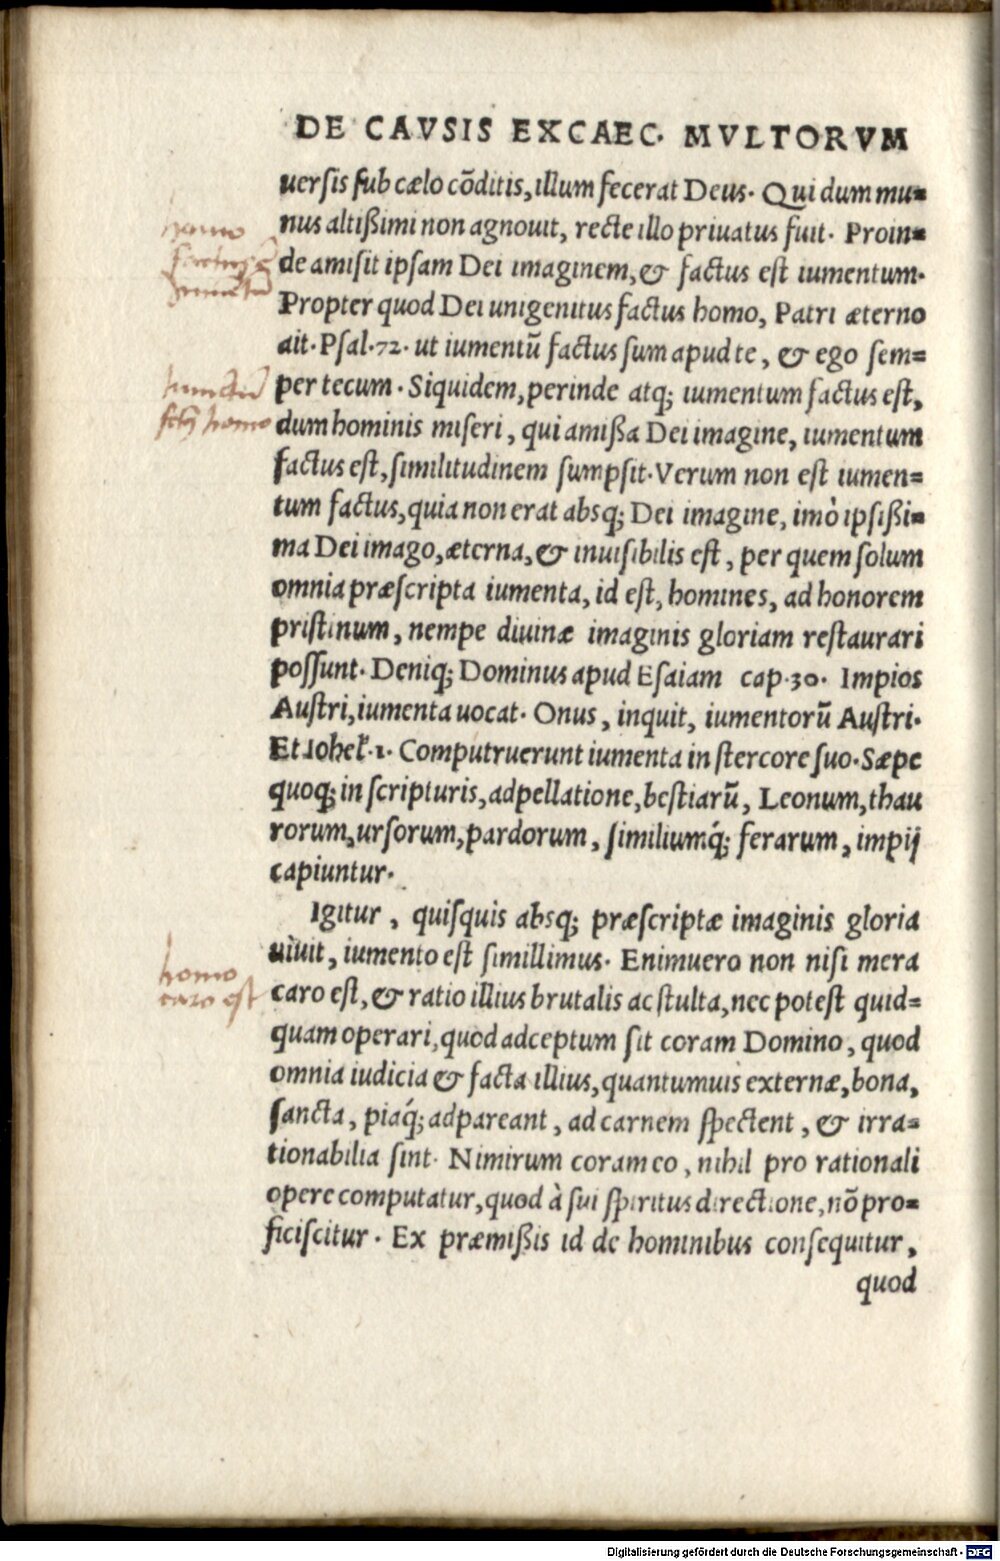 DE CAVSIS EXCAEC. MVLTORVM
uersis sub cælo cõditis, illum fecerat Deus. Qui dum mu=
nus altißimi non agnouit, recte illo priuatus fuit. Proin=
de amisit ipsam Dei imaginem, & factus est iumentum.
Propter quod Dei unigenitus factus homo, Patri æterno
ait. Psal. 72. ut iumentũ factus sum apud te, & ego sem=
per tecum. Siquidem, perinde atq; iumentum factus est,
dum hominis miseri, qui amißa Dei imagine, iumentum
factus est, similitudinem sumpsit. Verum non est iumen=
tum factus, quia non erat absq; Dei imagine, imò ipsißi=
ma Dei imago, æterna, & inuisibilis est, per quem solum
omnia præscripta iumenta, id est, homines, ad honorem
pristinum, nempe diuinæ imaginis gloriam restaurari
possunt. Deniq; Dominus apud Esaiam cap. 30. Impios
Austri, iumenta uocat. Onus, inquit, iumentorũ Austri.
Et Iohel. 1. Computruerunt iumenta in stercore suo. Sæpe
quoq; in scripturis, adpellatione, bestiarũ, Leonum, thau
rorum, ursorum, pardorum, similiumq́; ferarum, impij
capiuntur.
Igitur, quisquis absq; præscriptæ imaginis gloria
uiuit, iumento est simillimus. Enimuero non nisi mera
caro est, & ratio illius brutalis ac stulta, nec potest quid=
quam operari, quod adceptum sit coram Domino, quod
omnia iudicia & facta illius, quantumuis externæ, bona,
sancta, piaq́; adpareant, ad carnem spectent, & irra=
tionabilia sint. Nimirum coram eo, nihil pro rationali
opere computatur, quod à sui spiritus directione, nõ pro=
ficiscitur. Ex præmißis id de hominibus consequitur,
quod
homo
homo
homo
caro est
Digitalisierung gefördert durch die Deutsche Forschungsgemeinschaft - DFG